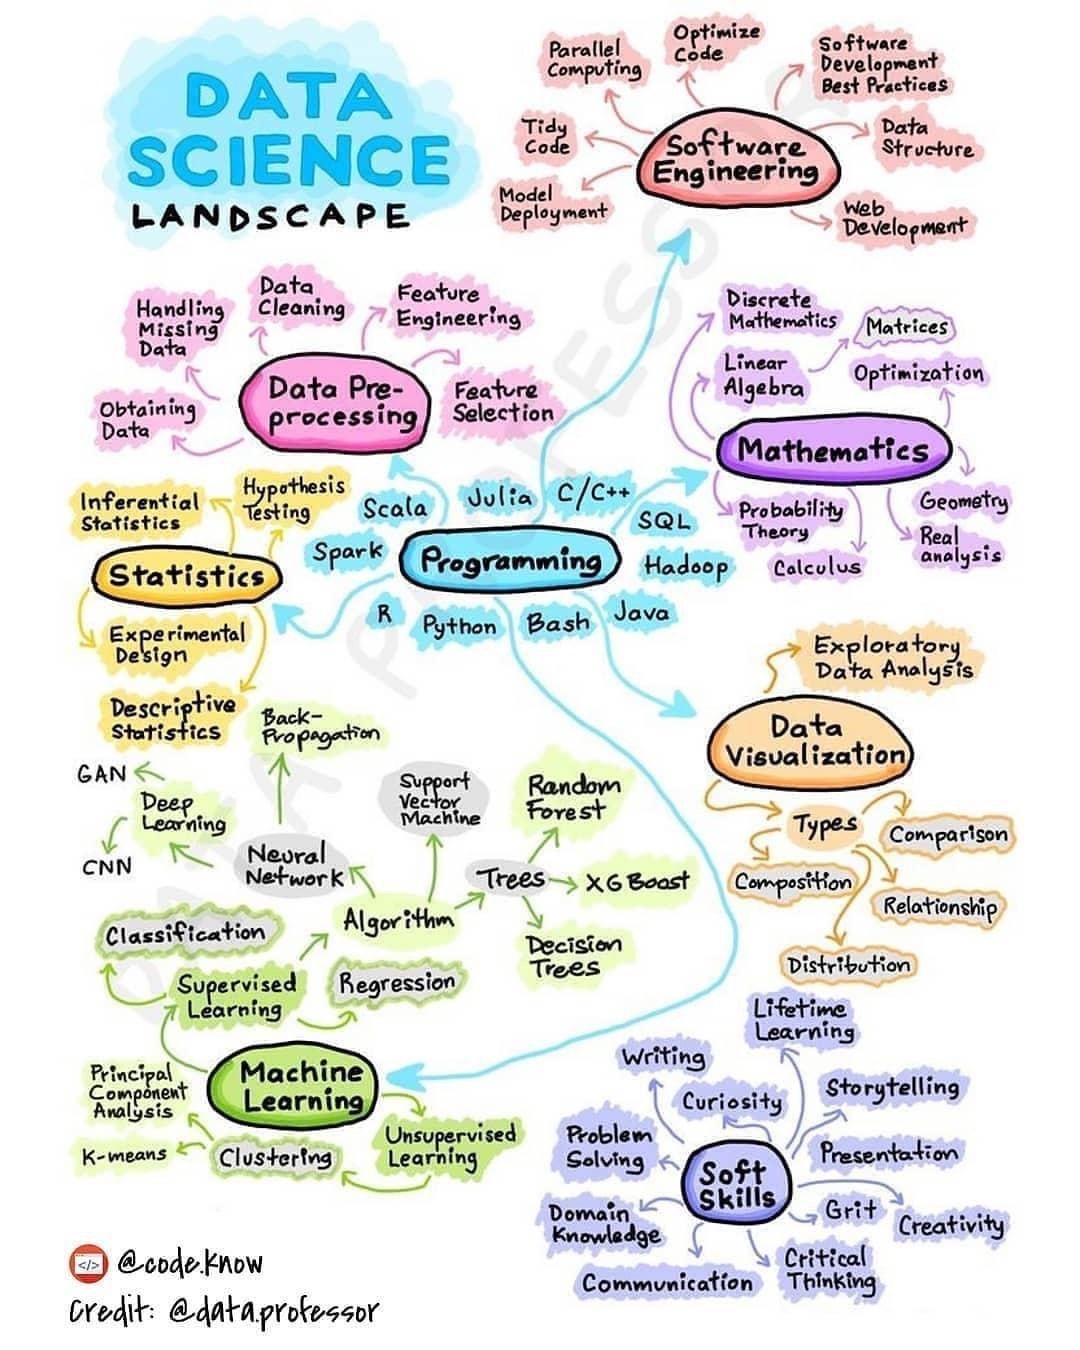 DATA
SCIENCE
LANDSCAPE
Parallel
Computing
Optimize
Code
Software
Development
Best Practices
Tidy
Code
Software
Engineering
Data
Structure
Model
Deployment
Web
Development
Handling
Missing
Data
Data
Cleaning
Feature
Engineering
Obtaining
Data
Data Pre-
processing
Feature
Selection
Discrete
Mathematics
Matrices
Linear
Algebra
Optimization
Mathematics
Probability
Theory
Calculus
Geometry
Real
analysis
Inferential
Statistics
Hypothesis
Testing
Statistics
Experimental
Design
Descriptive
Statistics
Scala
Julia
C/C++
SQL
Spark
Programming
Hadoop
R
Python
Bash
Java
Exploratory
Data Analysis
Data
Visualization
Types
Comparison
Composition
Relationship
Distribution
Back-
Propagation
GAN
Deep
Learning
CNN
Neural
Network
Support
Vector
Machine
Random
Forest
Trees
XG Boost
Decision
Trees
Algorithm
Classification
Supervised
Learning
Regression
Machine
Learning
Principal
Component
Analysis
K-means
Clustering
Unsupervised
Learning
Lifetime
Learning
Writing
Curiosity
Storytelling
Problem
Solving
Soft
Skills
Presentation
Domain
Knowledge
Grit
Creativity
Communication
Critical
Thinking
DATA PROFESSOR
</> @code.know
Credit: @data.professor